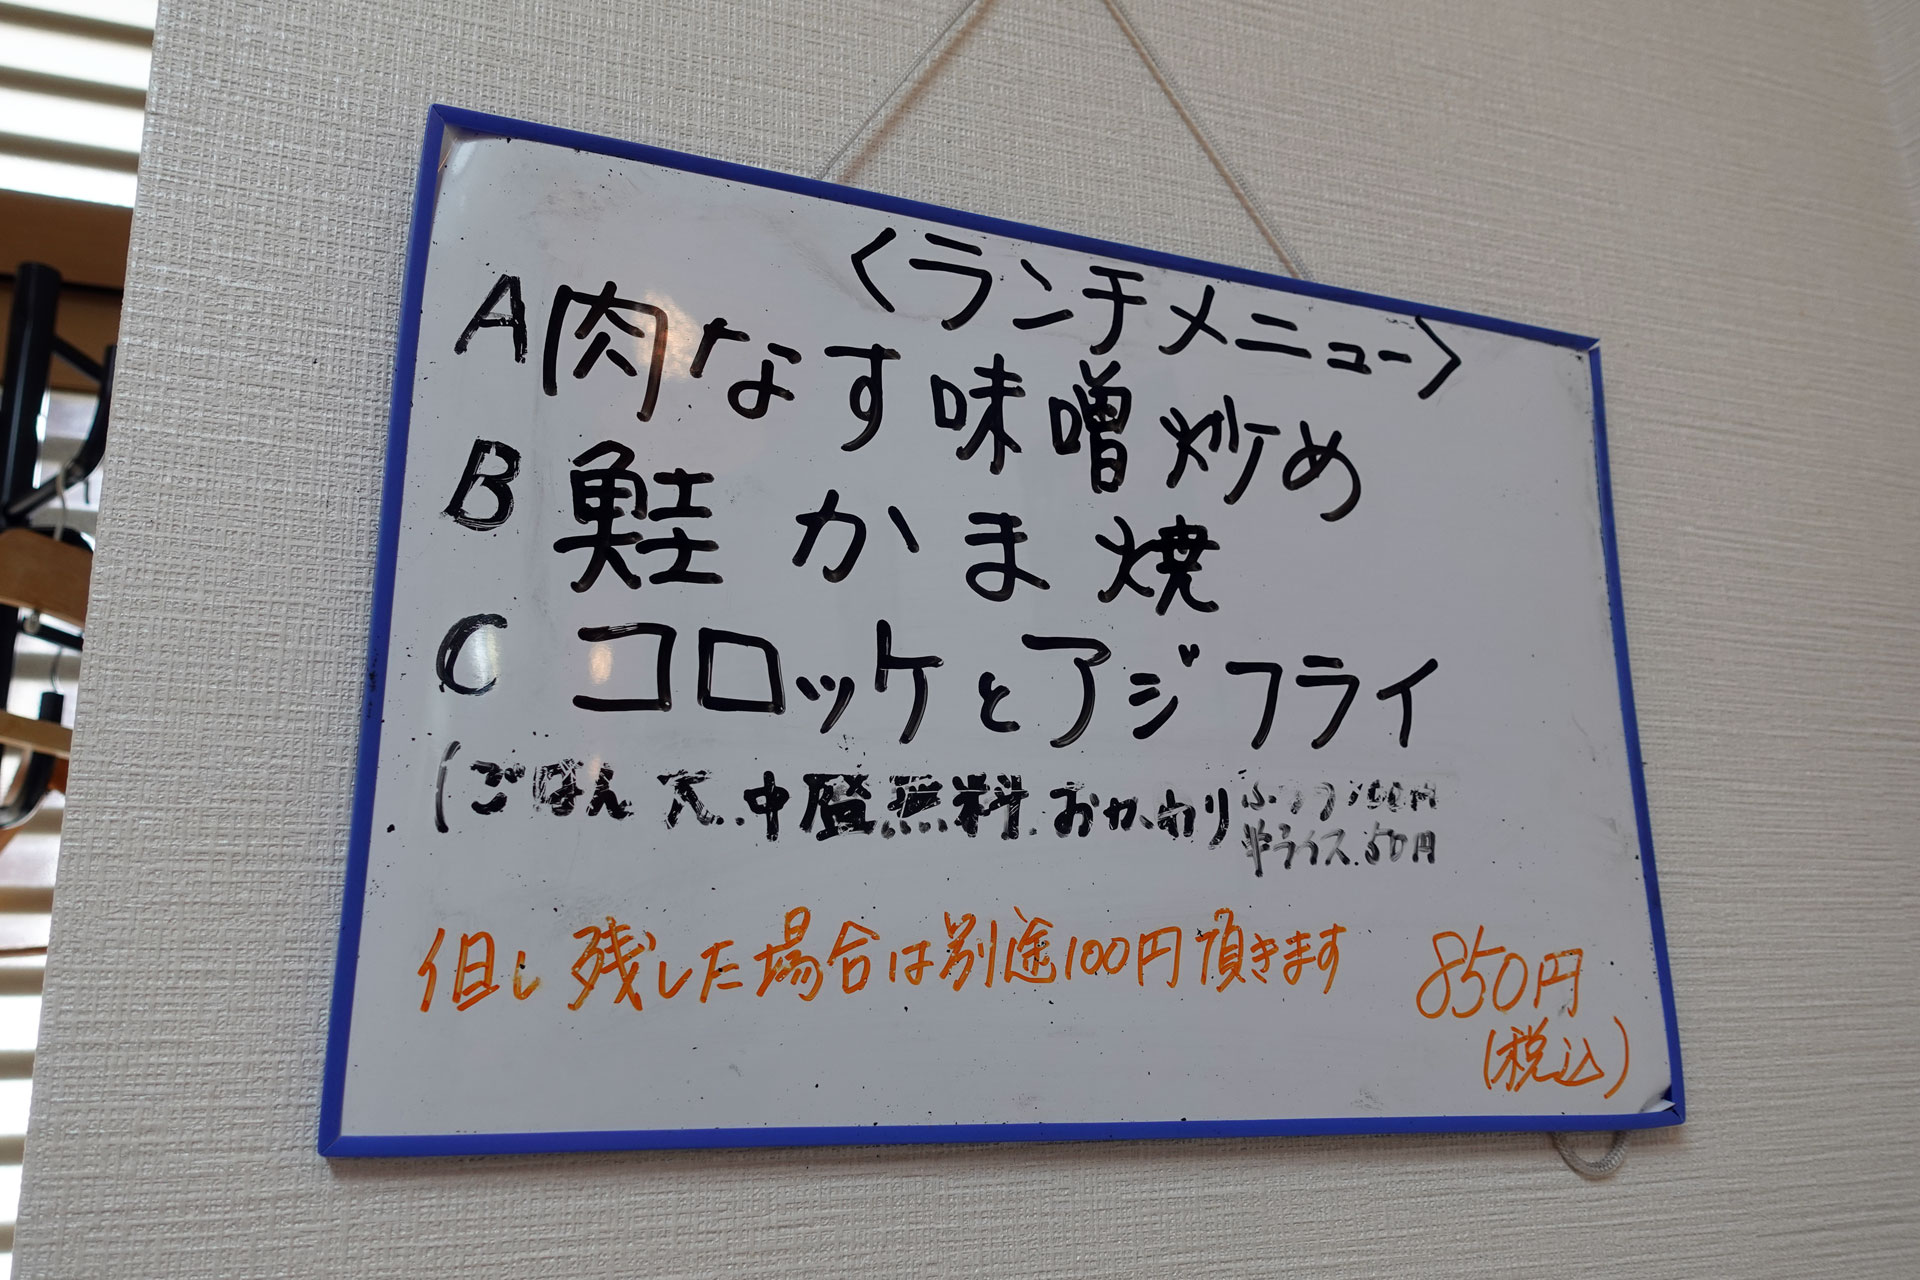 〈ランチメニュー〉
A 肉なす味噌炒め
B 鮭かま焼
C コロッケとアジフライ
(ごはん 大.中盛無料.おかわり ふつう100円
半ライス.50円
但し残した場合は別途100円頂きます 850円
(税込)